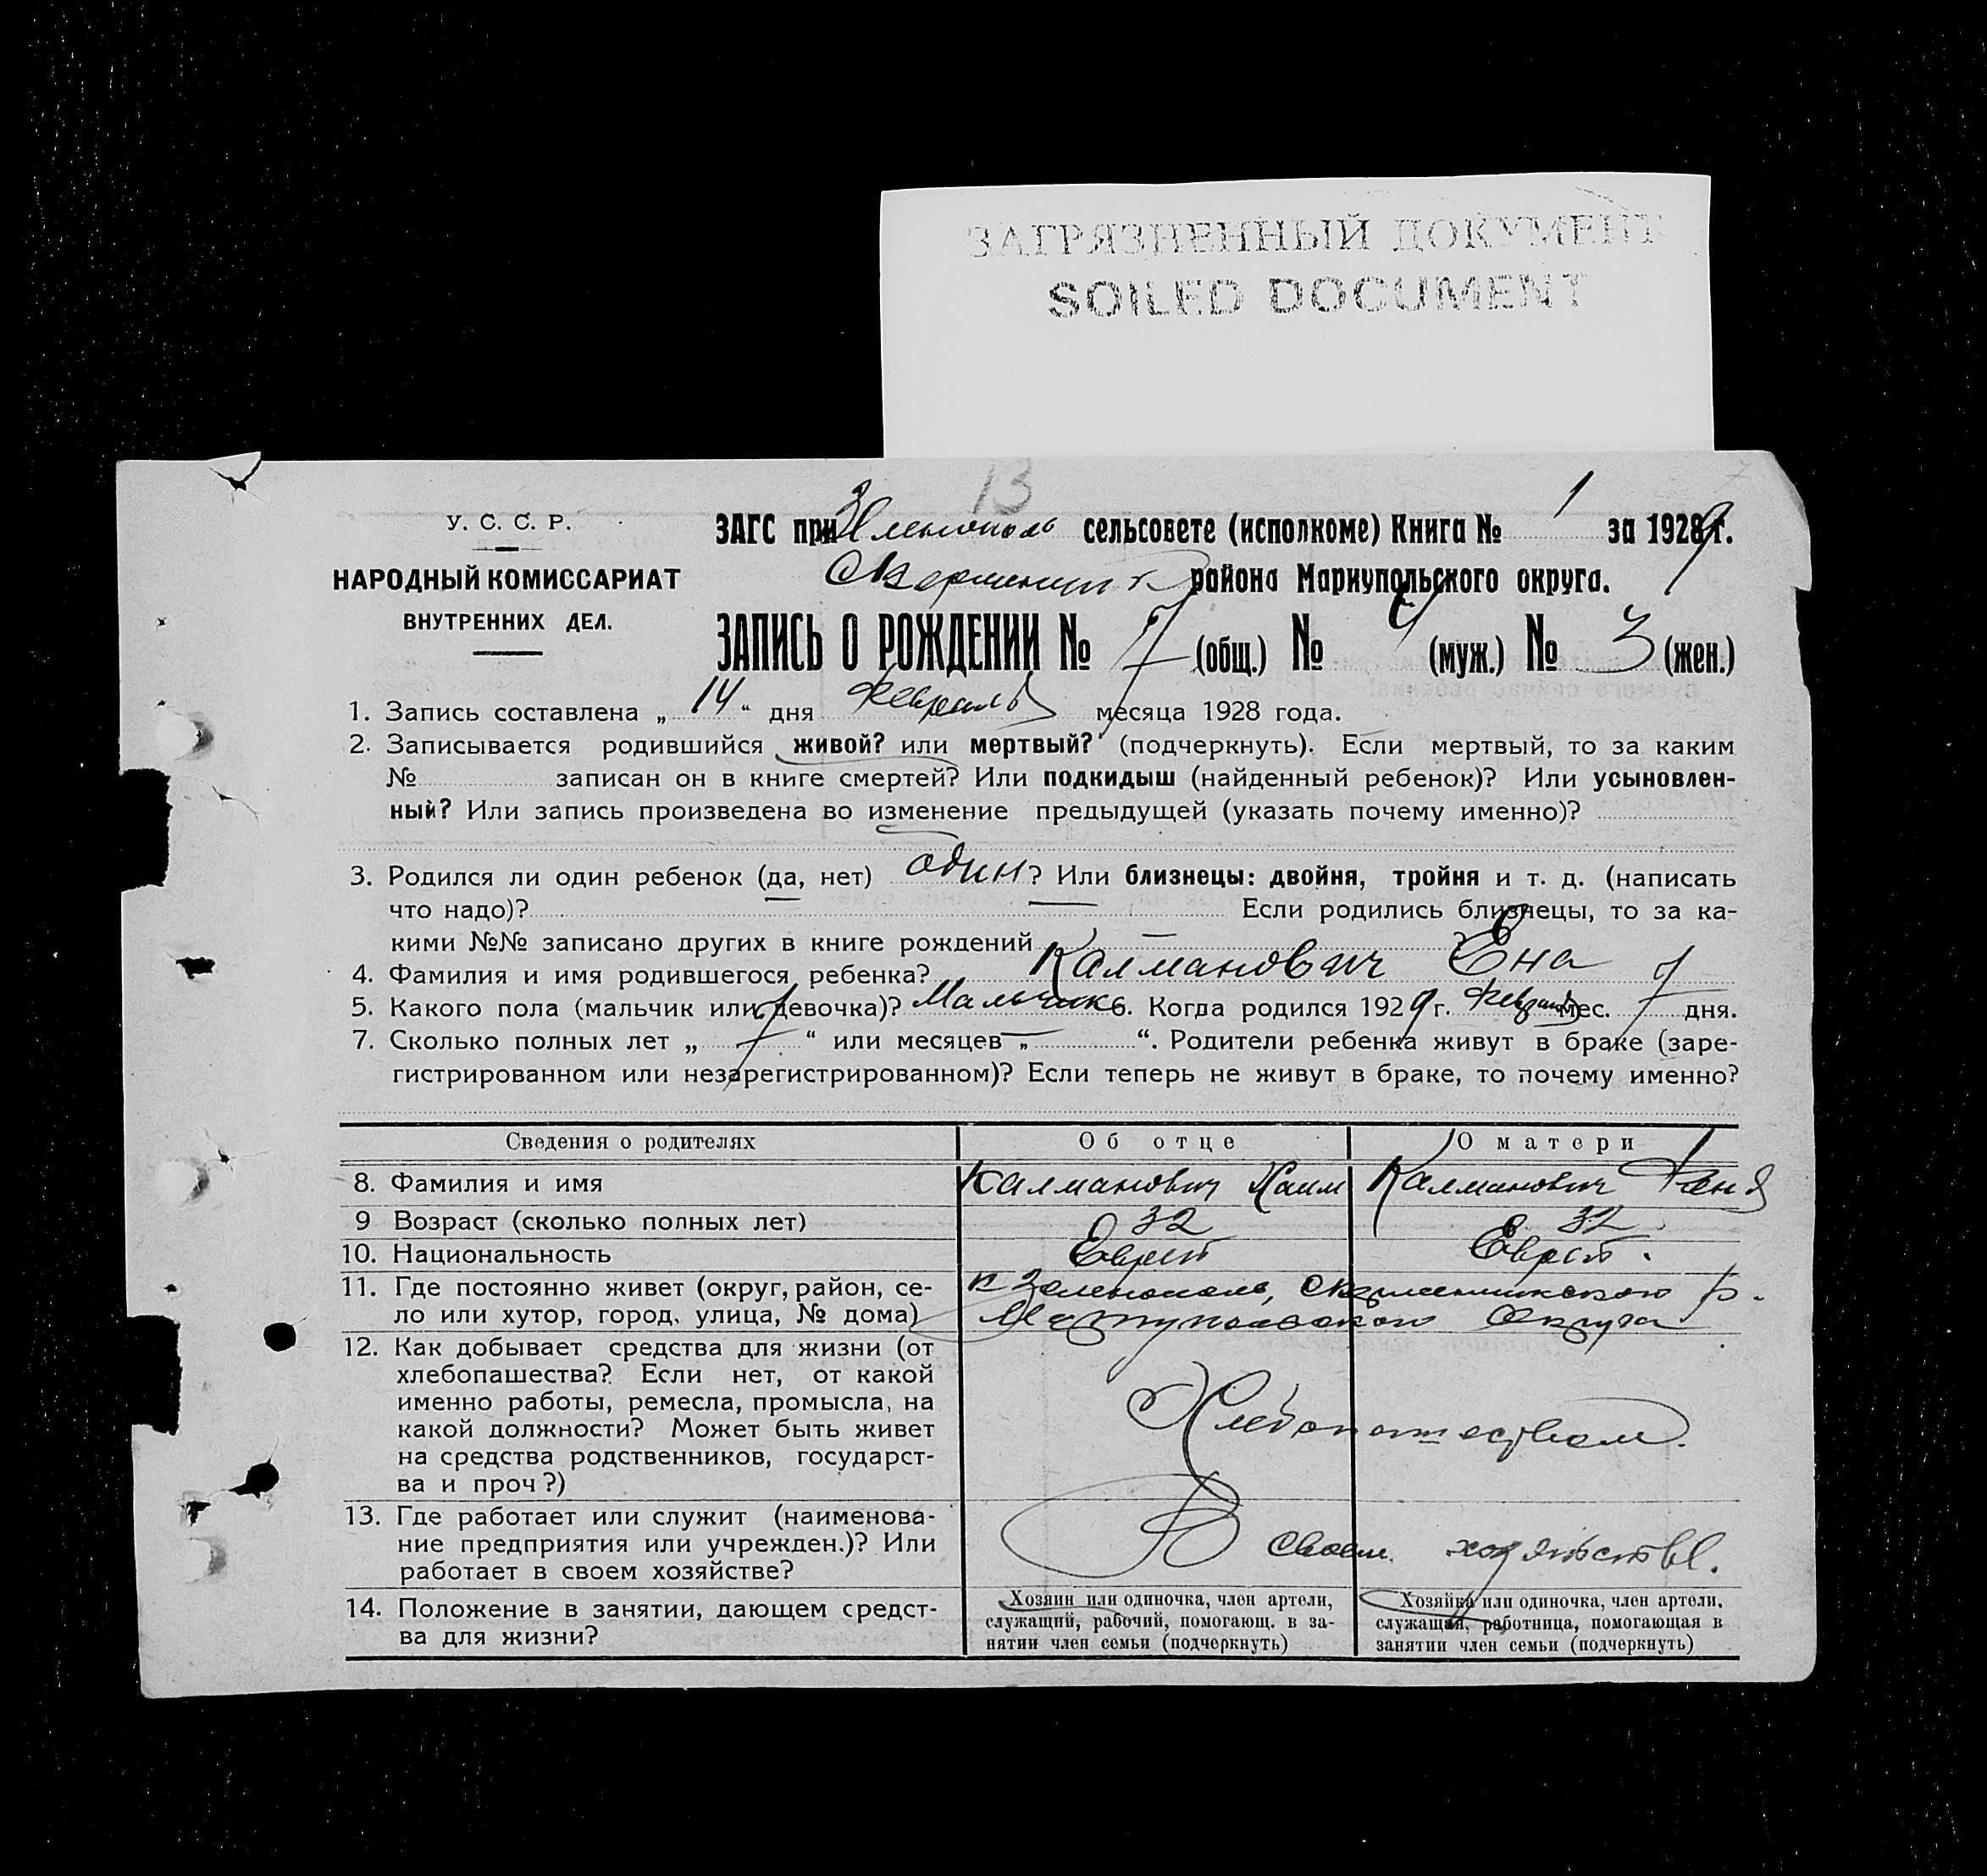 ЗАГРЯЗНЕННЫЙ ДОКУМЕНТ
SOILED DOCUMENT
13
У. С. С. Р.
НАРОДНЫЙ КОМИССАРИАТ
ВНУТРЕННИХ ДЕЛ.
ЗАГС при сельсовете (исполкоме) Книга № 1 за 1929 г.
района Мариупольского округа.
ЗАПИСЬ О РОЖДЕНИИ № 7 (общ.) № 4 (муж.) № 3 (жен.)
1. Запись составлена „ 14 “ дня Февраль месяца 1928 года.
2. Записывается родившийся живой? или мертвый? (подчеркнуть). Если мертвый, то за каким
№ записан он в книге смертей? Или подкидыш (найденный ребенок)? Или усыновлен-
ный? Или запись произведена во изменение предыдущей (указать почему именно)?
3. Родился ли один ребенок (да, нет) один? Или близнецы: двойня, тройня и т. д. (написать
что надо)? — Если родились близнецы, то за ка-
кими №№ записано других в книге рождений — ?
4. Фамилия и имя родившегося ребенка? Калманович Ена
5. Какого пола (мальчик или девочка)? Мальчик 6. Когда родился 1929 г. Февраль мес. 7 дня.
7. Сколько полных лет „ “ или месяцев „ — “. Родители ребенка живут в браке (заре-
гистрированном или незарегистрированном)? Если теперь не живут в браке, то почему именно?
Сведения о родителях Об отце О матери
8. Фамилия и имя Калманович Хаим Калманович Феня
9 Возраст (сколько полных лет) 32 32
10. Национальность Еврей Еврей.
11. Где постоянно живет (округ, район, се-
ло или хутор, город, улица, № дома)
к Зеленополь, р.
Мариупольского Округа
12. Как добывает средства для жизни (от
хлебопашества? Если нет, от какой
именно работы, ремесла, промысла, на
какой должности? Может быть живет
на средства родственников, государст-
ва и проч?)
Хлебопашеством.
13. Где работает или служит (наименова-
ние предприятия или учрежден.)? Или
работает в своем хозяйстве?
В своем хозяйстве.
14. Положение в занятии, дающем средст-
ва для жизни?
Хозяин или одиночка, член артели,
служащий, рабочий, помогающ. в за-
нятии член семьи (подчеркнуть)
Хозяйка или одиночка, член артели,
служащая, работница, помогающая в
занятии член семьи (подчеркнуть)